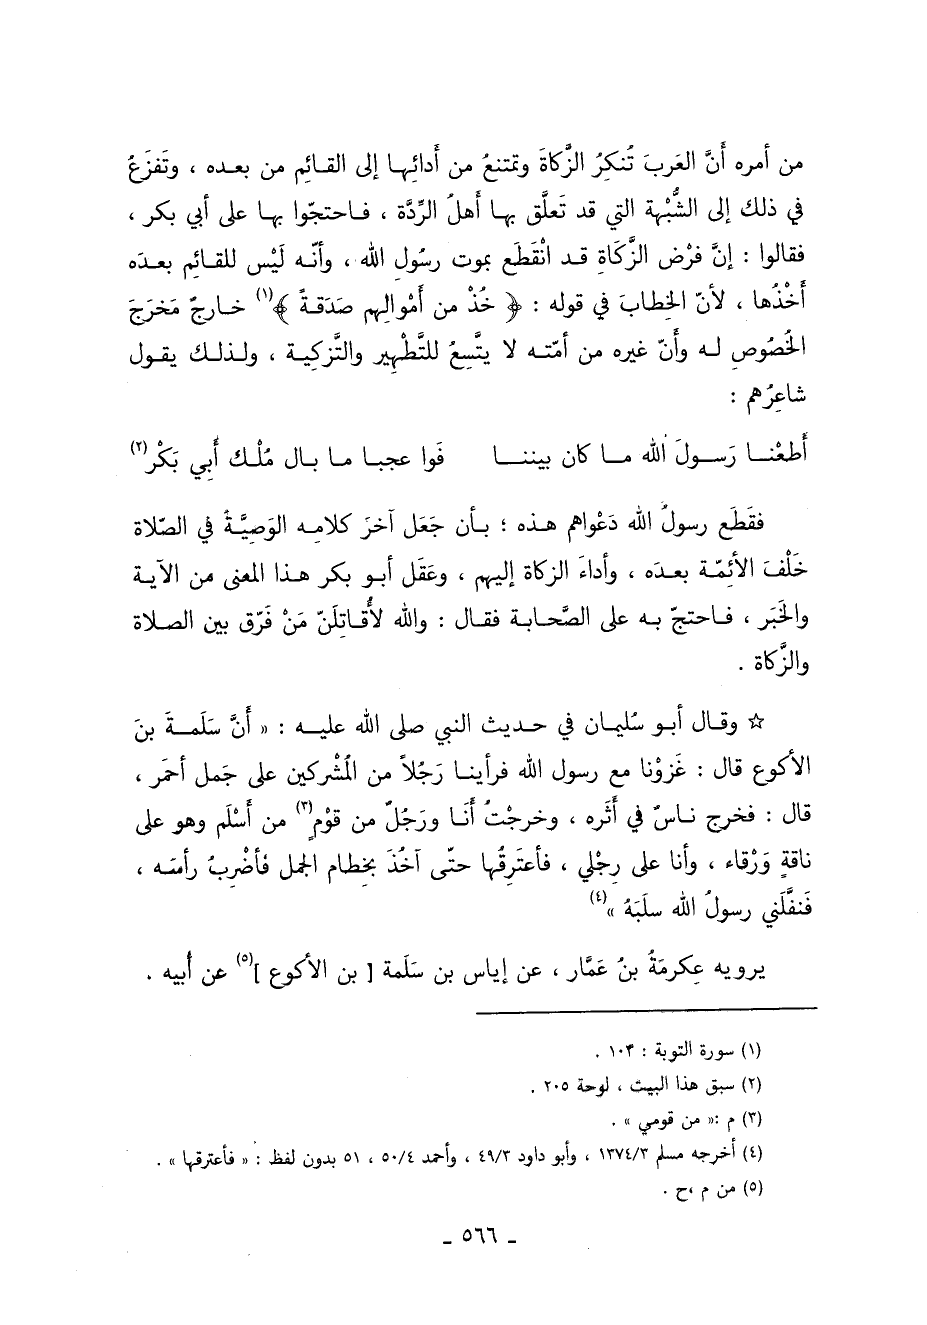 من أمره أَنَّ العَربَ تُنكِرُ الزَّكاةَ وتمتنعُ من أَدائِها إلى القائِم من بعده ، وتَفزَعُ
في ذلك إلى الشُّبْهة التي قد تَعلَّق بها أَهلُ الرِّدَّة ، فاحتجّوا بها على أبي بكر ،
فقالوا : إنَّ فرْض الزَّكَاةِ قد انْقَطَع بموت رسُولِ الله ، وأنّه لَيْس للقائم بعدَه
أَخْذُها ، لأنّ الخطابَ في قوله : ﴿ خُذْ من أَمْوالِهم صَدَقةً ﴾(١) خارجٌ مَخرَجَ
الخُصُوصِ له وأَنّ غيره من أمّته لا يتَّسِعُ للتَّطْهِير والتَّزكية ، ولذلك يقول
شاعِرُهم :
أَطعْنا رَسولَ الله ما كان بيننا فَوا عجبا ما بال مُلْك أَبِي بَكْر(٢)
فقَطَع رسولُ الله دَعْواهم هذه ؛ بأن جَعَل آخرَ كلامِه الوَصِيَّةَ في الصّلاة
خَلْفَ الأئِمّة بعدَه ، وأداءَ الزكاة إليهم ، وعَقَل أبو بكر هذا المعنى من الآية
والخَبَر ، فاحتجّ به على الصَّحابة فقال : والله لأُقاتِلَنّ مَنْ فَرّق بين الصلاة
والزَّكاة .
☆ وقال أبو سُليمان في حديث النبي صلى الله عليه : « أَنَّ سَلَمةَ بنَ
الأكوع قال : غَزوْنا مع رسول الله فرأَينا رَجُلاً من المُشْركين على جَمل أحمَر ،
قال : فخرج ناسٌ في أَثَره ، وخرجْتُ أَنَا ورَجُلٌ من قوْمٍ(٣) من أَسْلَم وهو على
ناقةٍ وَرْقاء ، وأنا على رِجْلي ، فأَعتَرِقُها حتّى آخُذَ بخِطام الجمل فأَضْرِبُ رأسَه ،
فَنفَّلَني رسولُ الله سلَبَهُ »(٤)
يرويه عِكرمَةُ بنُ عَمَّار ، عن إياس بن سَلَمة [ بن الأكوع ](٥) عن أَبيه .
(١) سورة التوبة : ١٠٣ .
(٢) سبق هذا البيت ، لوحة ٢٠٥ .
(٣) م :« من قومي » .
(٤) أخرجه مسلم ١٣٧٤/٣ ، وأبو داود ٤٩/٣ ، وأحمد ٥٠/٤ ، ٥١ بدون لفظ : « فأعترقها » .
(٥) من م ،ح .
ـ ٥٦٦ ـ